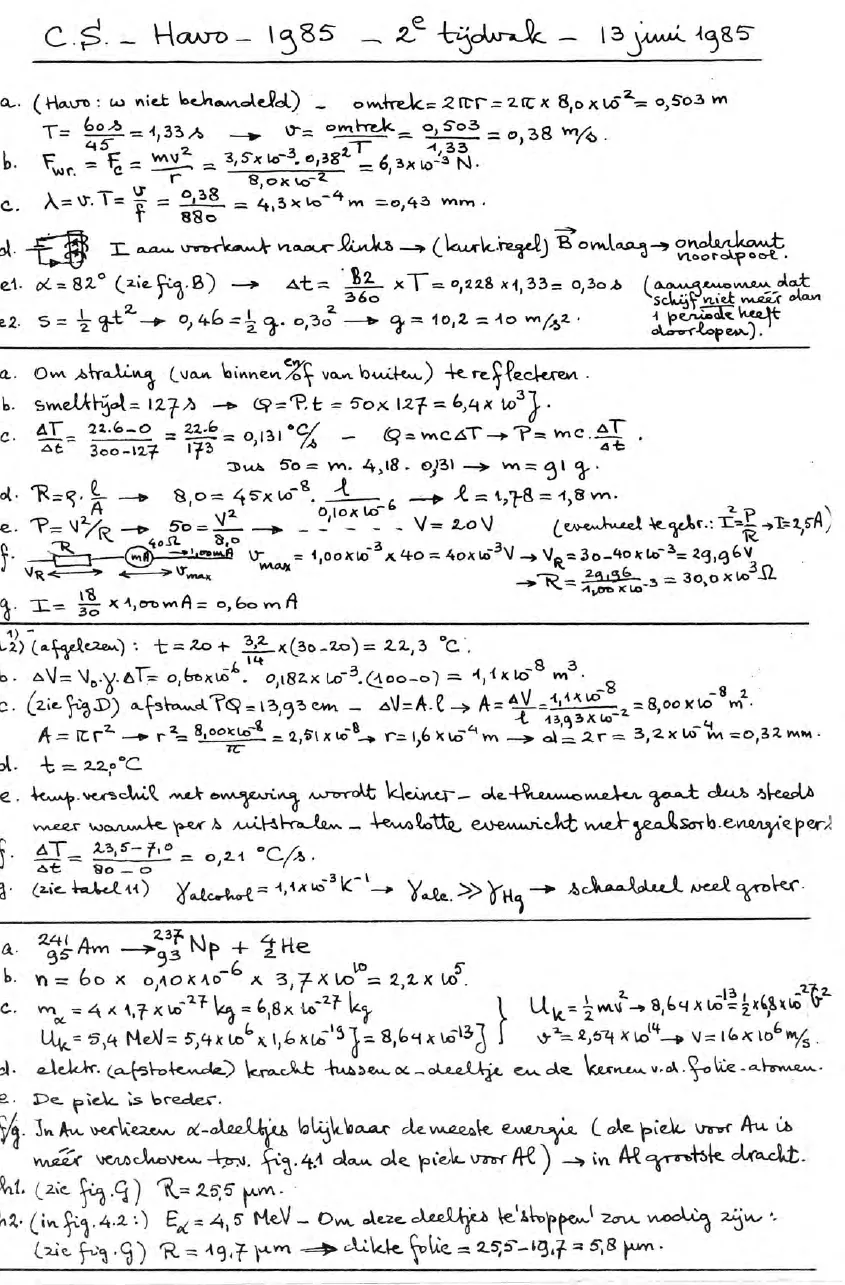 C.S. - Havo - 1985 - 2e tijdvak - 13 juni 1985
a. (Havo: ω niet behandeld) - omtrek = 2πr = 2π × 8,0 × 10⁻² = 0,503 m
T = 60 s/45 = 1,33 s → v = omtrek/T = 0,503/1,33 = 0,38 m/s.
b. Fwr. = Fc = mv²/r = 3,5×10⁻³. 0,38²/8,0×10⁻² = 6,3×10⁻³ N.
c. λ = v.T = v/f = 0,38/880 = 4,3×10⁻⁴ m = 0,43 mm.
d. I aan voorkant naar links → (kurk.regel) B⃗ omlaag → onderkant noordpool.
e1. α = 82° (zie fig.B) → Δt = 82/360 × T = 0,228 × 1,33 = 0,30 s (aangenomen dat schijf niet méér dan 1 periode heeft doorlopen).
e2. s = ½ gt² → 0,46 = ½ g. 0,30² → g = 10,2 = 10 m/s².
a. Om straling (van binnen en/of van buiten) te reflecteren.
b. smelttijd = 127 s → Q = P.t = 50 × 127 = 6,4 × 10³ J.
c. ΔT/Δt = 22.6-0/300-127 = 22.6/173 = 0,131 °C/s - Q = mcΔT → P = mc. ΔT/Δt.
Dus 50 = m. 4,18. 0,131 → m = 91 g.
d. R = ρ. l/A → 8,0 = 45×10⁻⁸. l/0,10×10⁻⁶ → l = 1,78 = 1,8 m.
e. P = V²/R → 50 = V²/8,0 → - - - - - V = 20 V (eventueel te gebr.: I² = P/R → I = 2,5A)
f. R 40Ω mA 1,00mA VR vmax vmax = 1,00×10⁻³ × 40 = 40×10⁻³ V → VR = 30-40×10⁻³ = 29,96 V
→ R = 29,96/1,00×10⁻³ = 30,0×10³ Ω
g. I = 18/30 × 1,00 mA = 0,60 mA
1)-2) (afgelezen): t = 20 + 3,2/14 × (30-20) = 22,3 °C.
b. ΔV = V₀.γ.ΔT = 0,60×10⁻⁶. 0,182 × 10⁻³.(100-0) = 1,1×10⁻⁸ m³.
c. (zie fig D) afstand PQ = 13,93 cm - ΔV = A.l → A = ΔV/l = 1,1×10⁻⁸/13,93×10⁻² = 8,00×10⁻⁸ m².
A = πr² → r² = 8,00×10⁻⁸/π = 2,51×10⁻⁸ → r = 1,6×10⁻⁴ m → d = 2r = 3,2×10⁻⁴ m = 0,32 mm.
d. t = 22,0 °C
e. temp.verschil met omgeving wordt kleiner - de thermometer gaat dus steeds
meer warmte per s uitstralen - tenslotte evenwicht met geabsorb.energie per s
f. ΔT/Δt = 23,5-7,0/80-0 = 0,21 °C/s.
g. (zie tabel 11) γalcohol = 1,1×10⁻³ K⁻¹ → γalc. ≫ γHg → schaaldeel veel groter.
a. ²⁴¹₉₅Am → ²³⁷₉₃Np + ⁴₂He
b. n = 60 × 0,10×10⁻⁶ × 3,7×10¹⁰ = 2,2 × 10⁵.
c. mα = 4 × 1,7×10⁻²⁷ kg = 6,8×10⁻²⁷ kg } Uk = ½mv² → 8,64×10⁻¹³ = ½×6,8×10⁻²⁷ v²
Uk = 5,4 MeV = 5,4×10⁶ × 1,6×10⁻¹⁹ J = 8,64×10⁻¹³ J } v² = 2,54×10¹⁴ → v = 16×10⁶ m/s.
d. elektr. (afstotende) kracht tussen α-deeltje en de kernen v.d. folie-atomen.
e. De piek is breder.
f/g. In Au verliezen α-deeltjes blijkbaar de meeste energie (de piek voor Au is
méér verschoven t.o.v. fig.4.1 dan de piek voor Al) → in Al grootste dracht.
h1. (zie fig.G) R = 25,5 μm.
h2. (in fig.4.2:) Eα = 4,5 MeV - Om deze deeltjes te 'stoppen' zou nodig zijn:
(zie fig.G) R = 19,7 μm → dikte folie = 25,5-19,7 = 5,8 μm.